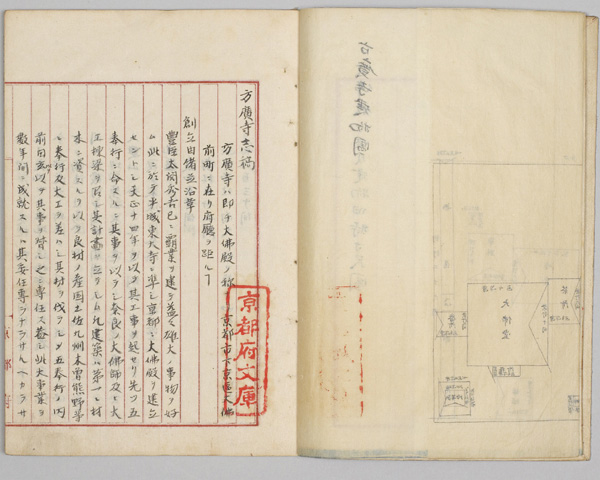 方廣寺志稿
方廣寺ハ即チ大佛殿ノ称 京都市下京區大佛
前町ニ在リ府廳ヲ距ル丁
創立由緒並沿革
豊臣太閤秀吉已ニ覇業ヲ建テ益々雄大ノ事物ヲ好
ム此ニ於テ平城東大寺ニ準シ京都ニ大佛殿ヲ建立
セントシ天正十四年ヲ以テ其工事ヲ起セリ先ツ五
奉行ニ命スルニ其事ヲ以テシ奈良ノ大佛師及ヒ大
工棟梁ヲ召シ其計畫ヲ立テシム凡建築ハ第一ニ材
木ニ資スルヲ以テ良材ノ産国土佐九州木曽熊野等
ニ奉行及大工ヲ差ハシ其材ヲ伐ラシメ五奉行ノ内
前田玄以ヲ其事ヲ督シ之ニ専任ス蓋シ此大事業ヲ
数年間ニ成就スルハ其委任専ラナラサルヘカラサ
京都府文庫
京都府
大佛堂